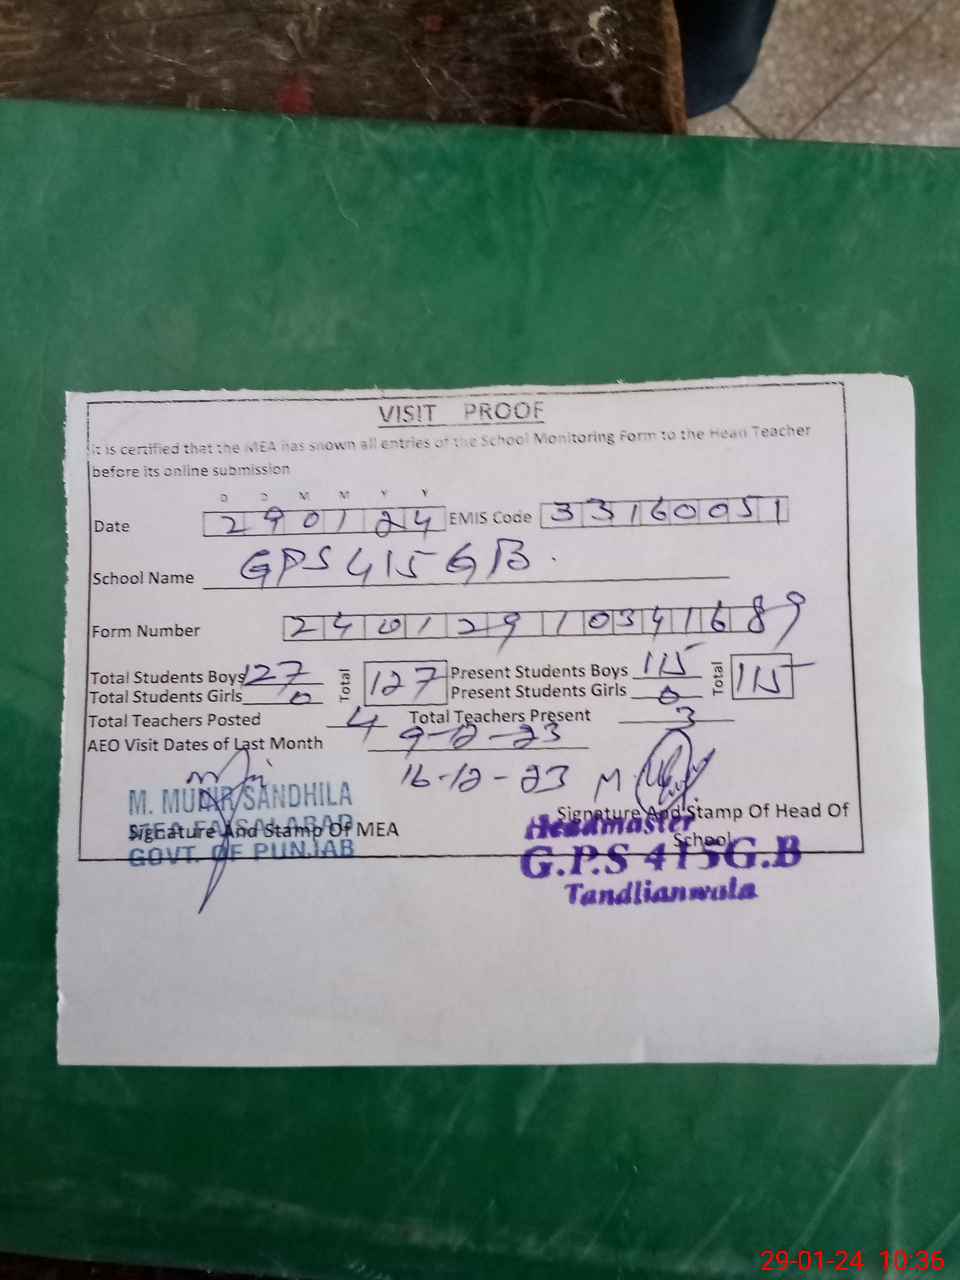 VISIT PROOF
It is certified that the MEA has shown all entries of the School Monitoring Form to the Head Teacher
before its online submission
D D M M Y Y
Date 290124 EMIS Code 33160051
School Name GPS 415 GB.
Form Number 24012910341689
Total Students Boys 127 Total 127 Present Students Boys 115 Total 115
Total Students Girls 0 Present Students Girls 0
Total Teachers Posted 4 Total Teachers Present 3
AEO Visit Dates of Last Month 9-12-23
16-12-23
M. MUNIR SANDHILA
MEA FAISALABAD
GOVT. OF PUNJAB
Signature And Stamp Of MEA
Signature And Stamp Of Head Of
School
Headmaster
G.P.S 415G.B
Tandlianwala
29-01-24 10:36